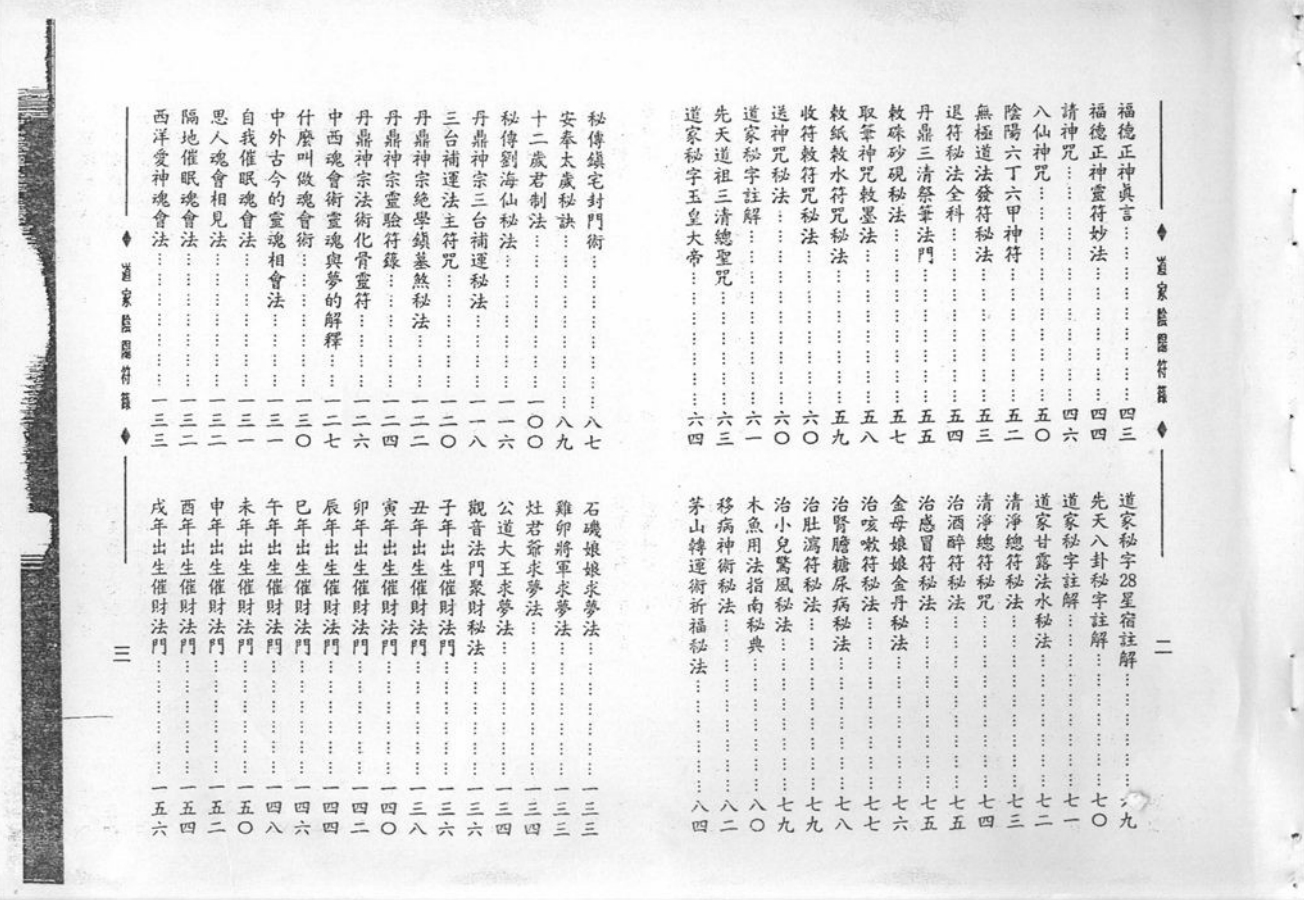 ◆ 道家陰陽符籙 ◆ 二
福德正神眞言……………………四三
福德正神靈符妙法………………四四
請神咒……………………四六
八仙神咒……………………五〇
陰陽六丁六甲神符………………五二
無極道法發符秘法………………五三
退符秘法全科………………五四
丹鼎三清祭筆法門………………五五
敕硃砂硯秘法………………五七
取筆神咒敕墨法………………五八
敕紙敕水符咒秘法………………五九
收符敕符咒秘法………………六〇
送神咒秘法………………六〇
道家秘字註解………………六一
先天道祖三清總聖咒………………六三
道家秘字玉皇大帝………………六四
道家秘字28星宿註解………………九
先天八卦秘字註解………………七〇
道家秘字註解………………七一
道家甘露法水秘法………………七二
清淨總符秘法………………七三
清淨總符秘咒………………七四
治酒醉符秘法………………七五
治感冒符秘法………………七五
金母娘娘金丹秘法………………七六
治咳嗽符秘法………………七七
治腎膽糖尿病秘法………………七八
治肚瀉符秘法………………七九
治小兒驚風秘法………………七九
木魚用法指南秘典………………八〇
移病神術秘法………………八二
茅山轉運術祈福秘法………………八四
秘傳鎭宅封門術………………八七
安奉太歲秘訣………………八九
十二歲君制法………………一〇〇
秘傳劉海仙秘法………………一一六
丹鼎神宗三台補運秘法………………一一八
三台補運法主符咒………………一二〇
丹鼎神宗絕學鎭墓煞秘法………………一二二
丹鼎神宗靈驗符籙………………一二四
丹鼎神宗法術化骨靈符………………一二六
中西魂會術靈魂與夢的解釋………………一二七
什麼叫做魂會術………………一三〇
中外古今的靈魂相會法………………一三一
自我催眠魂會法………………一三一
思人魂會相見法………………一三二
隔地催眠魂會法………………一三二
西洋愛神魂會法………………一三三
石磯娘娘求夢法………………一三三
雞卯將軍求夢法………………一三三
灶君爺求夢法………………一三四
公道大王求夢法………………一三四
觀音法門聚財秘法………………一三六
子年出生催財法門………………一三六
丑年出生催財法門………………一三八
寅年出生催財法門………………一四〇
卯年出生催財法門………………一四二
辰年出生催財法門………………一四四
巳年出生催財法門………………一四六
午年出生催財法門………………一四八
未年出生催財法門………………一五〇
申年出生催財法門………………一五二
酉年出生催財法門………………一五四
戌年出生催財法門………………一五六
◆ 道家陰陽符籙 ◆ 三